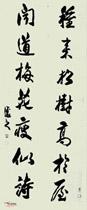 種來松樹高於屋
聞道梅花瘦似詩